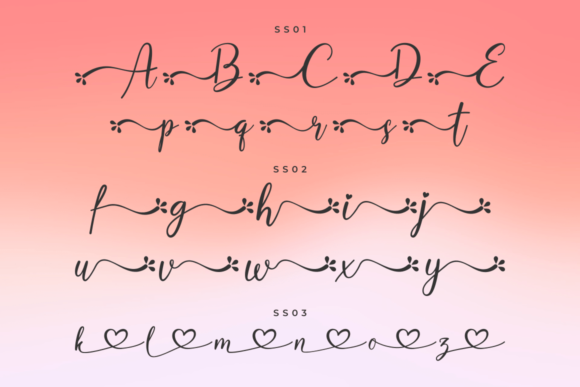 SS01
A B C D E
p q r s t
SS02
f g h i j
u v w x y
SS03
k l m n o z